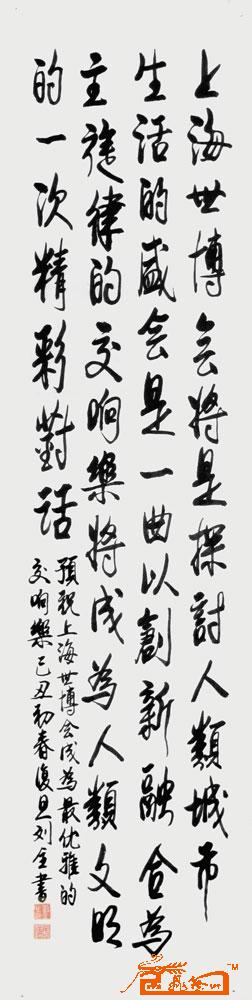 上海世博会将是探討人類城市
生活的盛会是一曲以創新融合為
主旋律的交响樂將成為人類文明
的一次精彩對話
預祝上海世博会成為最优雅的
交响樂己丑初春復旦刘金書